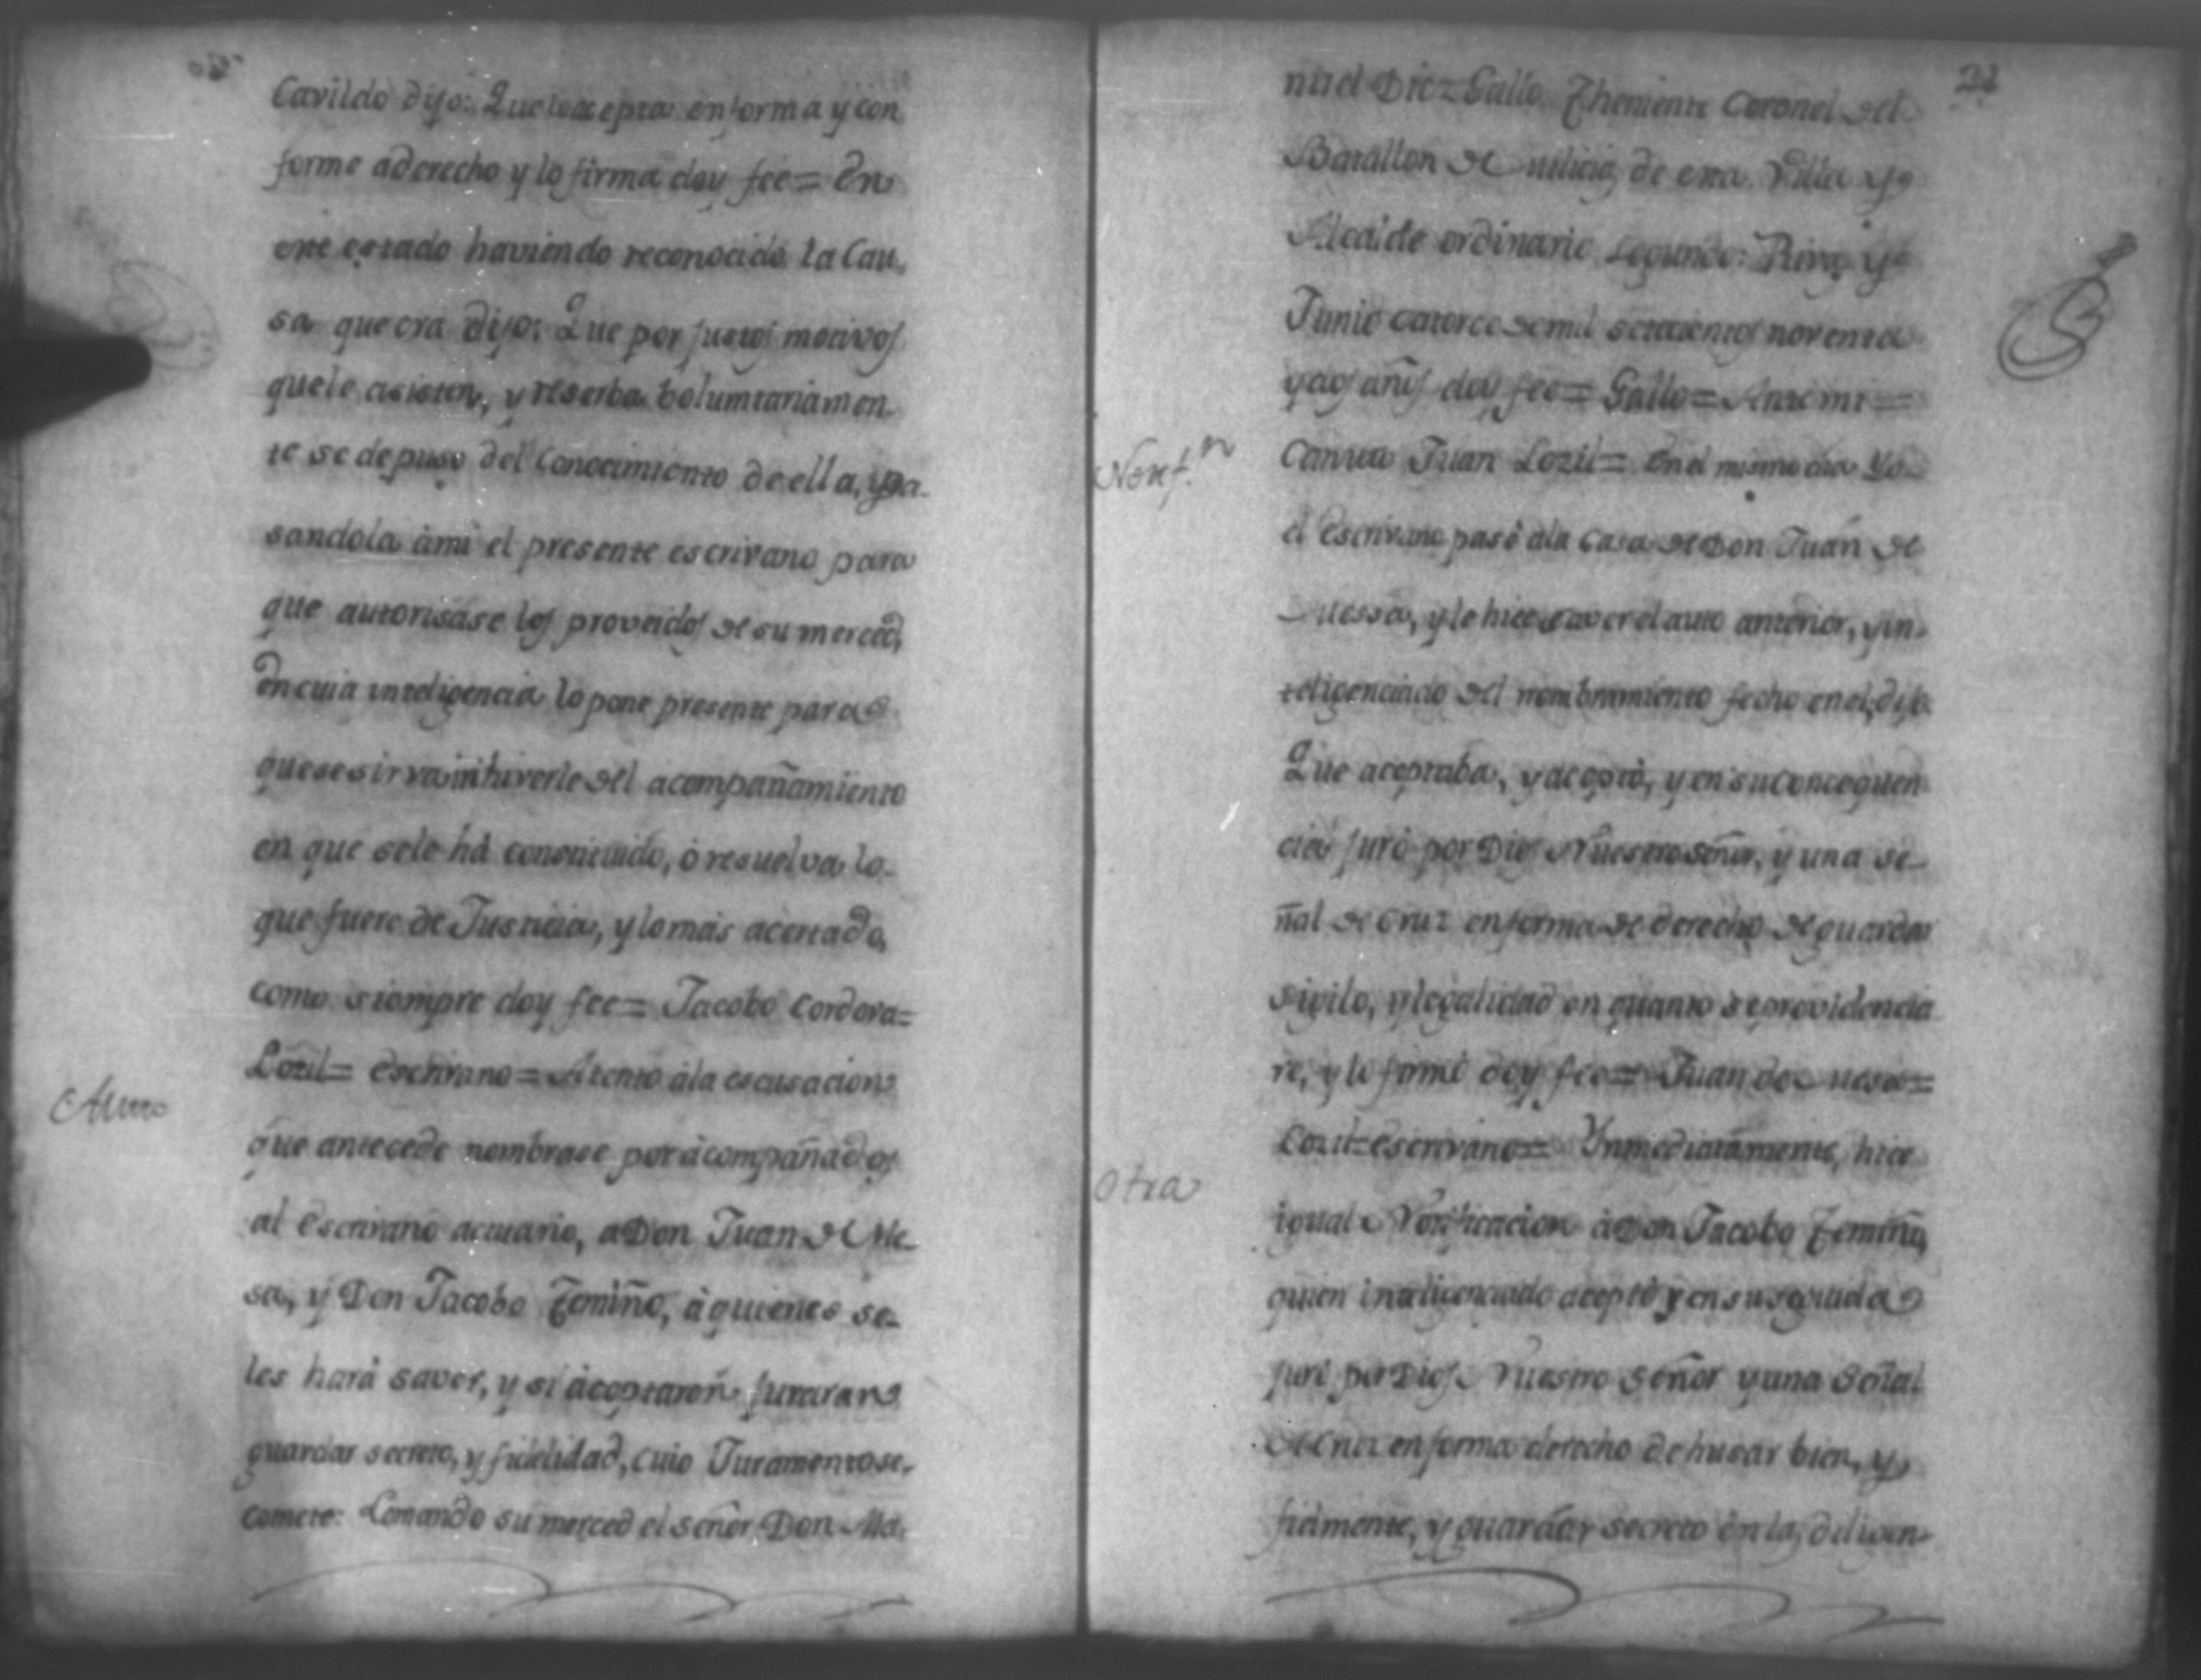 Cavildo dijo: Que lo acepta en forma y con
forme a derecho y lo firma doy fee= En
este estado haviendo reconocido la Cau,
sa que era dijo: Que por justos motivos
que le asisten, y reserba boluntariamen,
te se depuso del Conocimiento de ella, y pa-
sandola àmi el presente escrivano para
que autorisase los proveidos de su merced,
en cuia inteligencia lo pone presente para
que se sirva inhiverle del acompañamiento
en que sele há constituido, ò resuelva lo-
que fuere de Justicia, y lo más acertado,
como siempre doy fee= Jacobo Cordova=
Lozil= escrivano= Atento àla escusacion
Auto
que antecede nombrase por àcompañados
al escrivano actuario, a Don Juan de Me-
sa, y Don Jacobo Zemiño, à quienes se-
les hará saver, y si àceptaren juraran
guardar secreto, y fidelidad, cuio Juramento se,
comete: Lo mando su merced el señor Don Ma,
21
nuel Diez Gallo Theniente Coronel del
Batallon de milicias de esta Villa y
Alcalde ordinario segundo: Rivas y
Junio catorce de mil setecientos noventa
y dos años doy fee= Gallo= Ante mi=
Notif.n
Canuto Juan Lozil= En el mismo dia Yo
el Escrivano pasé ála casa de Don Juan de
Messa, y le hice saver el auto anterior, y in,
teligenciado del nombramiento fecho en el, dijo
Que aceptaba, y aceptó, y en su concequen
cia juró por Dios Nuestro Señor, y una se-
ñal de Cruz en forma de derecho de guardar
sigilo, y legalidad en quanto se providencia
re, y lo firmó doy fee= Juan de Mesa=
Lozil= escrivano= Ynmediatamente, hice
Otra
igual Notificacion à Don Jacobo Zemiño,
quien inteligenciado aceptó y en su seguida
juró por Dios Nuestro Señor y una Señal
de Cruz en forma derecho de husar bien, y
fielmente, y guardar secreto èn las diligen-